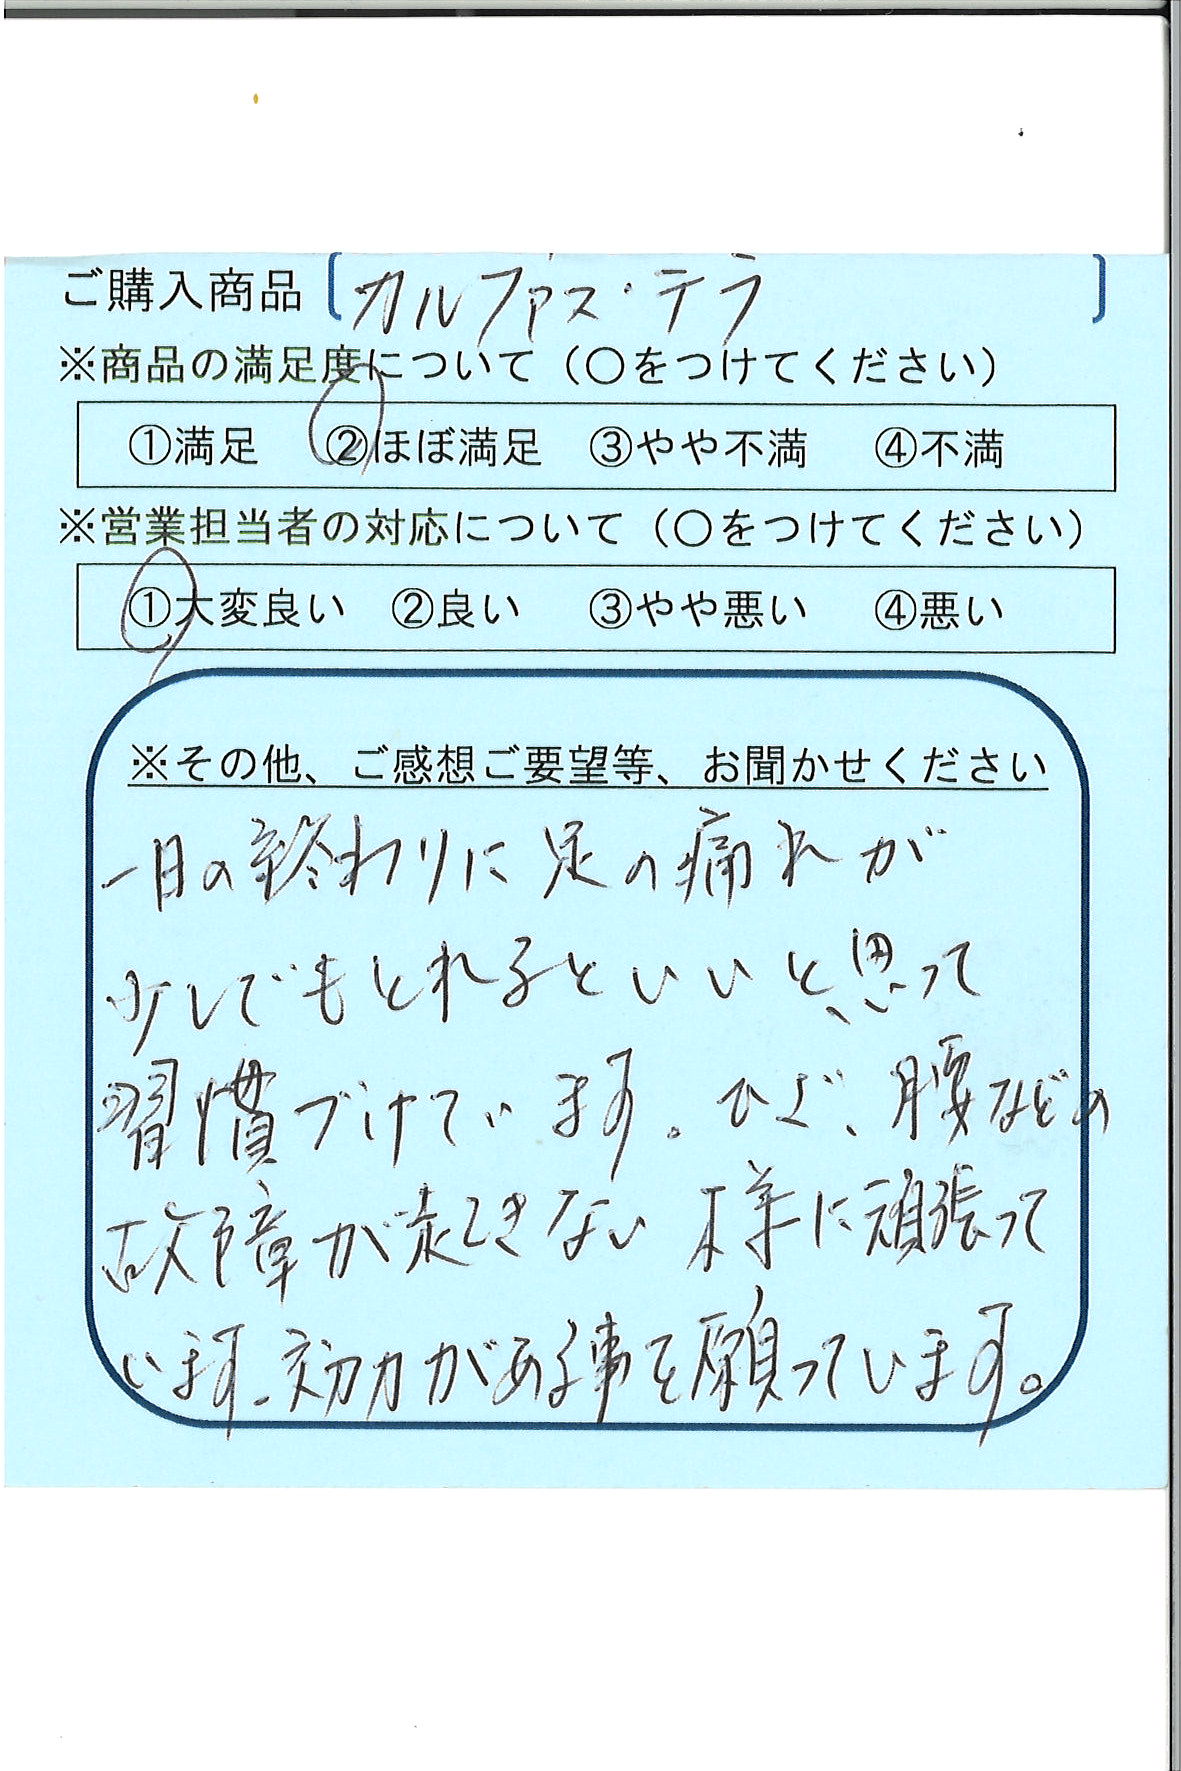 ご購入商品 [カルファス・テラ]
※商品の満足度について（○をつけてください）
①満足 ②ほぼ満足 ③やや不満 ④不満
※営業担当者の対応について（○をつけてください）
①大変良い ②良い ③やや悪い ④悪い
※その他、ご感想ご要望等、お聞かせください
一日の終わりに足の痛れが
少しでもとれるといいと思って
習慣づけています。ひざ、腰などの
故障が起きない様に頑張って
います。効力がある事を願っています。